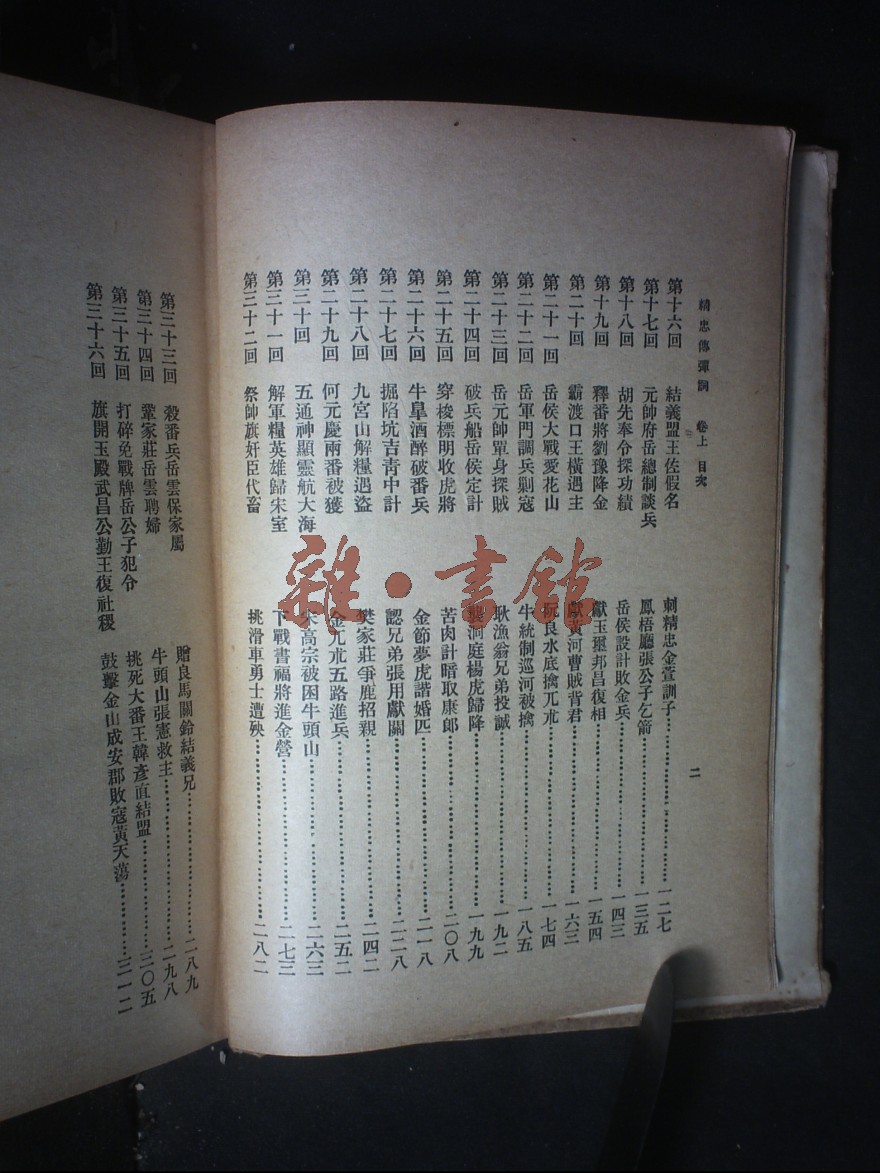 精忠傳彈詞 卷上 目次 二
第十六回 結義盟王佐假名 刺精忠金萱訓子 一二七
第十七回 元帥府岳總制談兵 鳳梧廳張公子乞箭 一三五
第十八回 胡先奉令探功績 岳侯設計敗金兵 一四三
第十九回 釋番將劉豫降金 獻玉璽邦昌復相 一五四
第二十回 霸渡口王橫遇主 獻黃河曹賊背君 一六三
第二十一回 岳侯大戰愛花山 阮良水底擒兀朮 一七四
第二十二回 岳軍門調兵剿寇 牛統制巡河被擒 一八五
第二十三回 岳元帥單身探賊 耿漁翁兄弟投誠 一九二
第二十四回 破兵船岳侯定計 襲洞庭楊虎歸降 一九九
第二十五回 穿梭標明收虎將 苦肉計暗取康郎 二〇八
第二十六回 牛臯酒醉破番兵 金節夢虎諧婚匹 二一八
第二十七回 掘陷坑吉青中計 認兄弟張用獻關 二二八
第二十八回 九宮山解糧遇盜 樊家莊爭鹿招親 二四二
第二十九回 何元慶兩番被獲 金兀朮五路進兵 二五二
第三十回 五通神顯靈航大海 宋高宗被困牛頭山 二六三
第三十一回 解軍糧英雄歸宋室 下戰書福將進金營 二七三
第三十二回 祭帥旗奸臣代畜 挑滑車勇士遭殃 二八二
第三十三回 殺番兵岳雲保家屬 贈良馬關鈴結義兄 二八九
第三十四回 鞏家莊岳雲聘婦 牛頭山張憲救主 二九八
第三十五回 打碎免戰牌岳公子犯令 挑死大番王韓彥直結盟 三〇五
第三十六回 旗開玉殿武昌公勤王復社稷 鼓擊金山成安郡敗寇黃天蕩 三一二
雜·書館